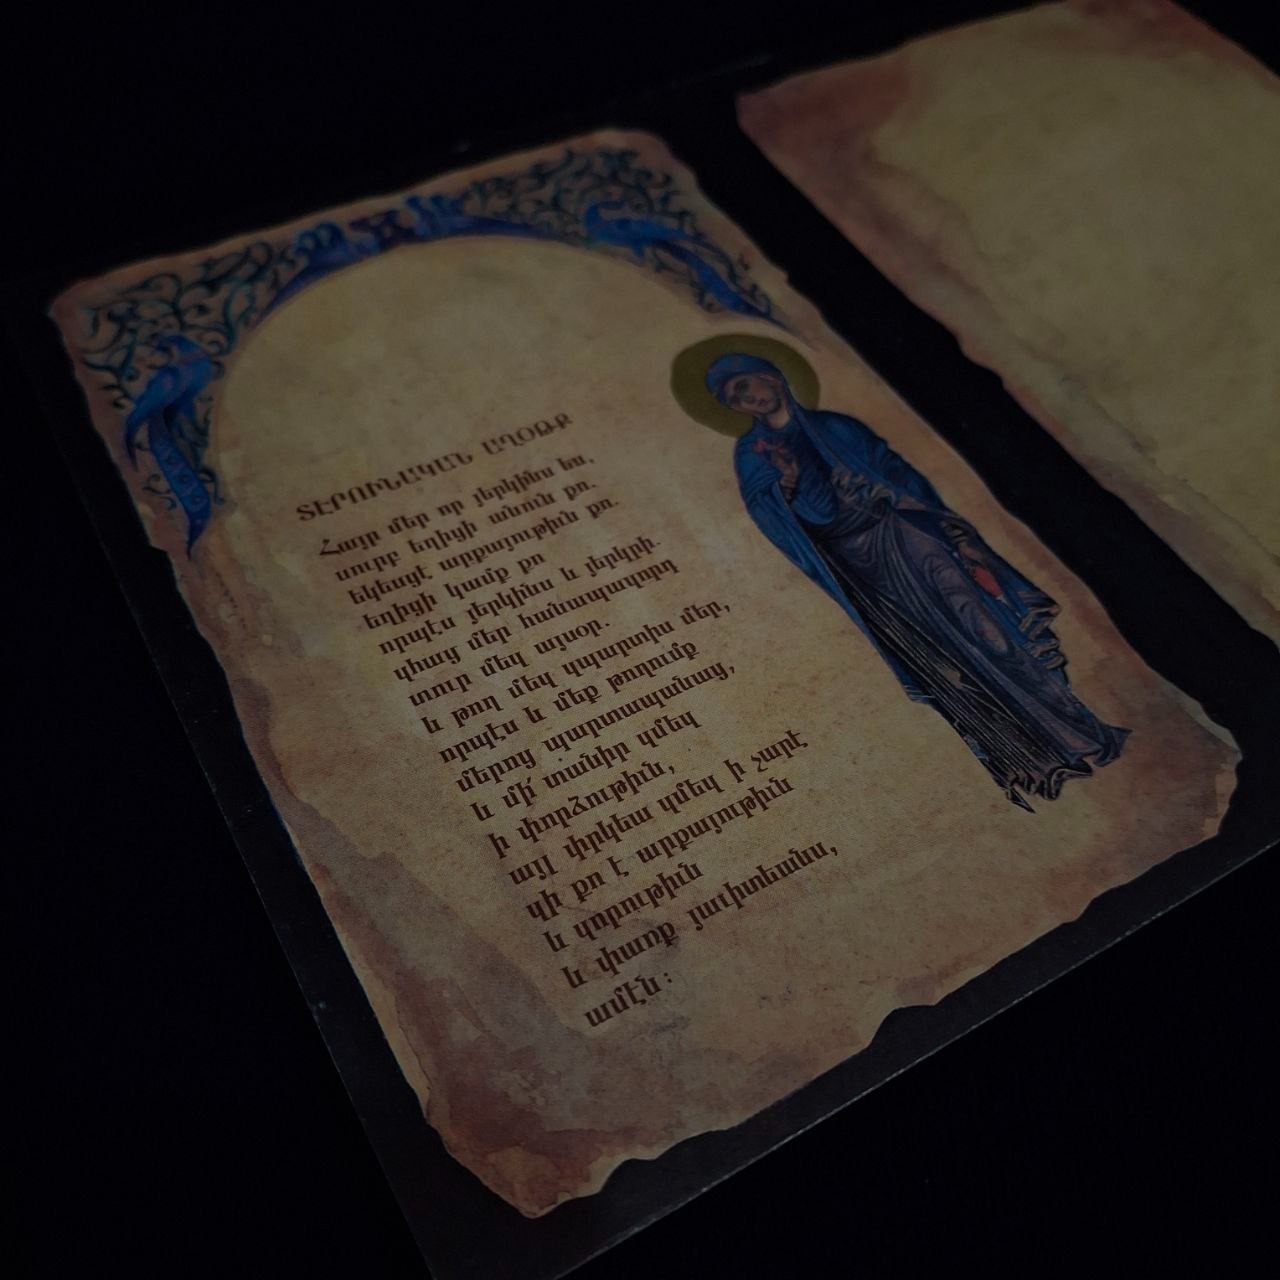 ՏԷՐՈՒՆԱԿԱՆ ԱՂՕԹՔ
Հայր մեր որ յերկինս ես,
սուրբ եղիցի անուն քո.
եկեսցէ արքայութիւն քո.
եղիցի կամք քո
որպէս յերկինս և յերկրի.
զհաց մեր հանապազորդ
տուր մեզ այսօր.
և թող մեզ զպարտիս մեր,
որպէս և մեք թողումք
մերոց պարտապանաց,
և մի՛ տանիր զմեզ
ի փորձութիւն,
այլ փրկեա զմեզ ի չարէ
զի քո է արքայութիւն
և զօրութիւն
և փառք յաւիտեանս,
ամէն: